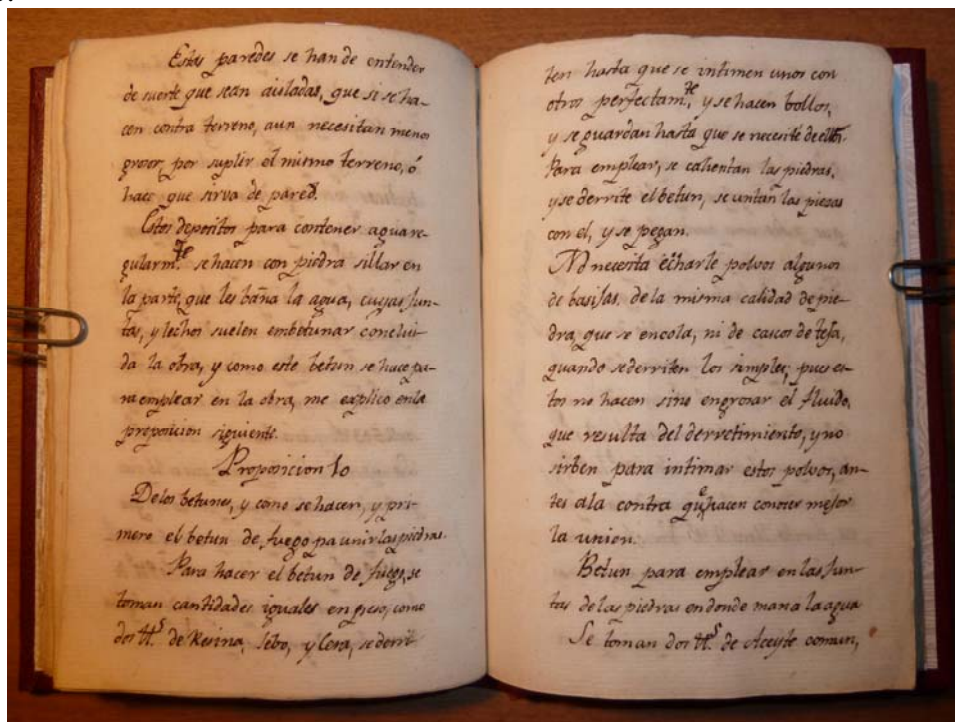 Estas paredes se han de entender
de suerte que sean aisladas, que si se ha-
cen contra terreno, aun necesitan menos
grosor, por suplir el mismo terreno, ó
hace que sirva de pared.
Estos depositos para contener agua re-
gularm.te se hacen con piedra sillar en
la parte, que les baña la agua, cuyas jun-
tas, y lechos suelen embetunar conclui-
da la obra, y como este betun se hace pa-
ra emplear en la obra, me explico en la
proposicion siguiente.
Proposicion 10
De los betunes, y como se hacen, y pri-
mero el betun de fuego pa unir las piedras.
Para hacer el betun de fuego, se
toman cantidades iguales en peso, como
dos tt.s de Resina, Sebo, y Cera, se derri-
ten hasta que se intimen unos con
otros perfectam.te, y se hacen bollos,
y se guardan hasta que se necesite de ellos.
Para emplear, se calientan las piedras,
y se derrite el betun, se untan las piezas
con el, y se pegan.
No necesita echarle polvos algunos
de basijas, de la misma calidad de pie-
dra, que se encola, ni de cascos de teja,
quando se derriten los simples; pues es-
tos no hacen sino engrosar el fluido,
que resulta del derretimiento, y no
sirben para intimar estos polvos, an-
tes a la contra que hacen conocer mejor
la union.
Betun para emplear en las jun-
tas de las piedras en donde mana la agua
Se toman dos tt.s de Aceyte comun,